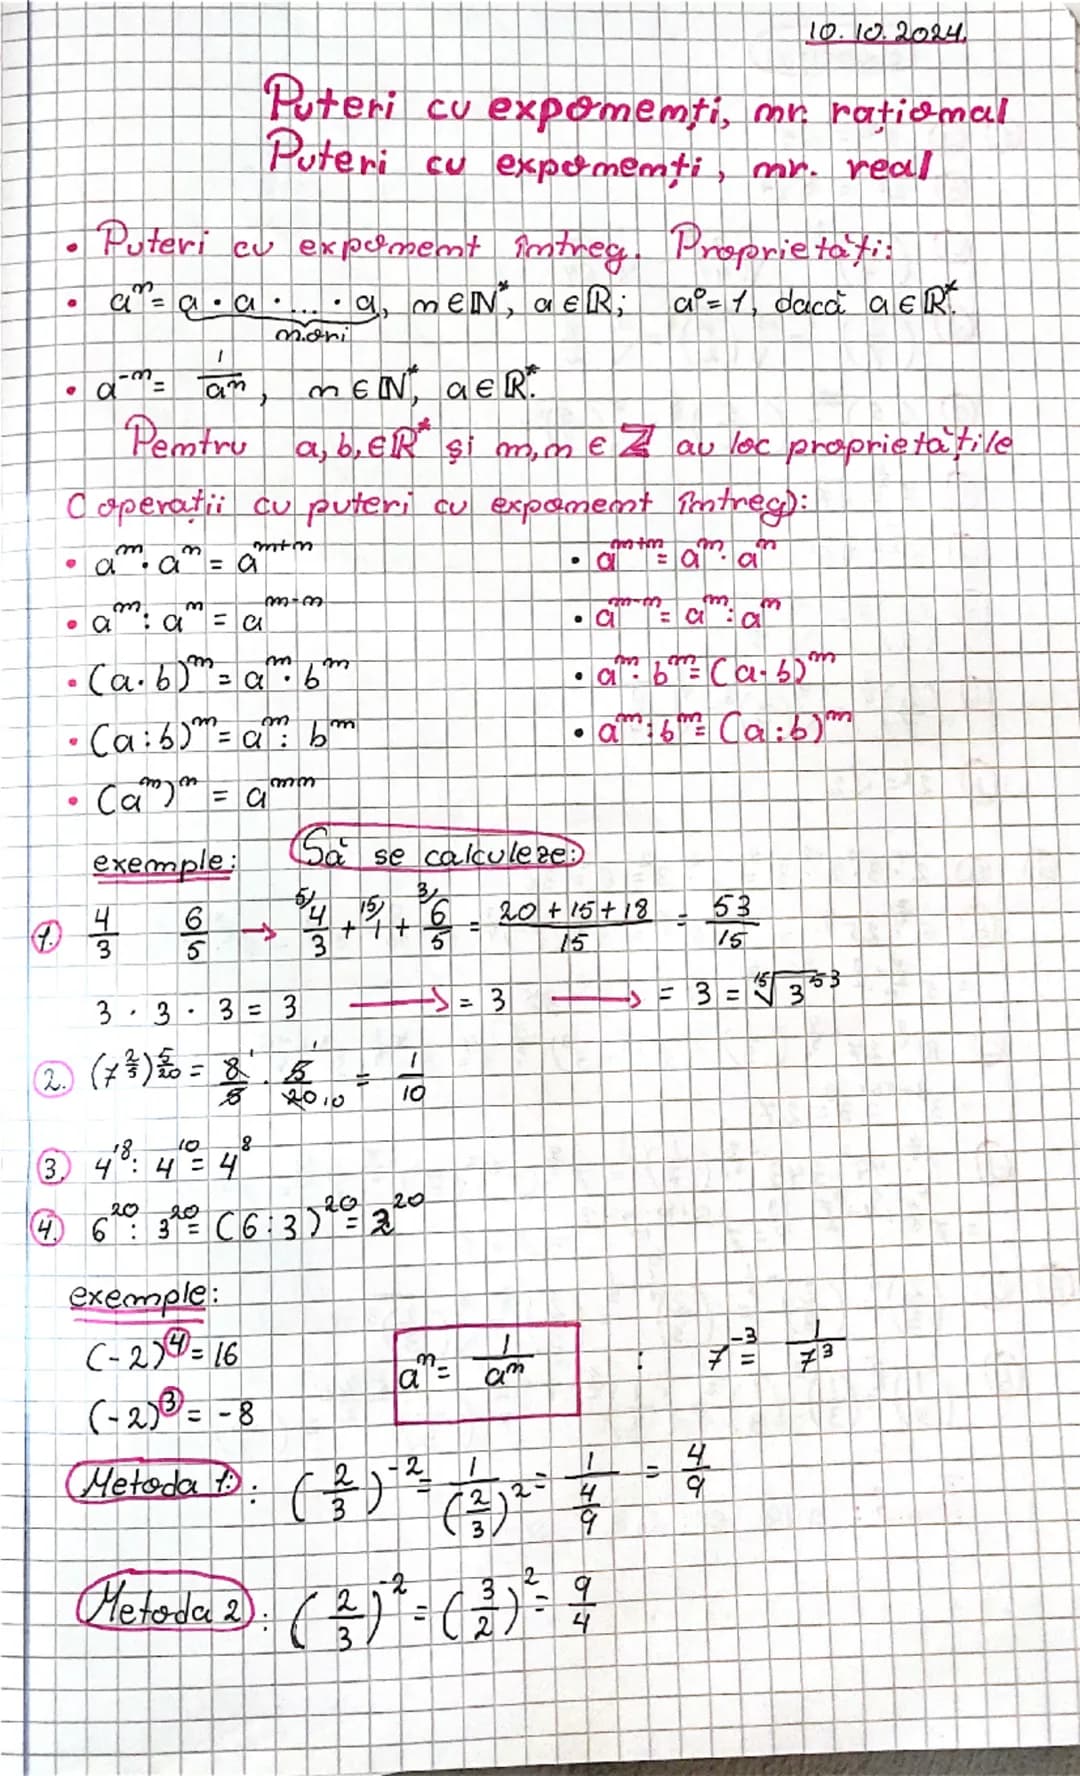 10.10.2024.
Puteri cu exponenți, nr. rațional
Puteri cu exponenți, nr. real
• Puteri cu exponent întreg. Proprietăți:
• aⁿ = a · a · ... · a, n ∈ ℕ*, a ∈ ℝ; a⁰ = 1, dacă a ∈ ℝ*.
n.ori
• a⁻ⁿ = 1/aⁿ, n ∈ ℕ*, a ∈ ℝ*.
Pentru a, b, ∈ ℝ* și m, n ∈ ℤ au loc proprietățile
(operații cu puteri cu exponent întreg):
• aᵐ · aⁿ = aᵐ⁺ⁿ • aᵐ⁺ⁿ = aᵐ · aⁿ
• aᵐ : aⁿ = aᵐ⁻ⁿ • aᵐ⁻ⁿ = aᵐ : aⁿ
• (a · b)ᵐ = aᵐ · bᵐ • aᵐ · bᵐ = (a · b)ᵐ
• (a : b)ᵐ = aᵐ : bᵐ • aᵐ : bᵐ = (a : b)ᵐ
• (aᵐ)ⁿ = aᵐⁿ
exemple: Să se calculeze:
1. 4/3 6/5 → 5/ 4/3 + 15/ 1 + 3/ 6/5 = (20 + 15 + 18)/15 = 53/15
3 · 3 · 3 = 3 → = 3 → = 3 = ¹⁵√3⁵³
2. = 8/5 · 5/20 10 = 1/10
3. 4¹⁸ : 4¹⁰ = 4⁸
4. 6²⁰ : 3²⁰ = (6 : 3)²⁰ = 2²⁰
exemple:
(-2)⁴ = 16 aⁿ = 1/aⁿ : 7⁻³ = 1/7³
(-2)³ = -8
Metoda 1: : (2/3)⁻² = 1/(2/3)² = 1/(4/9) = 4/9
Metoda 2: (2/3)⁻² = (3/2)² = 9/4